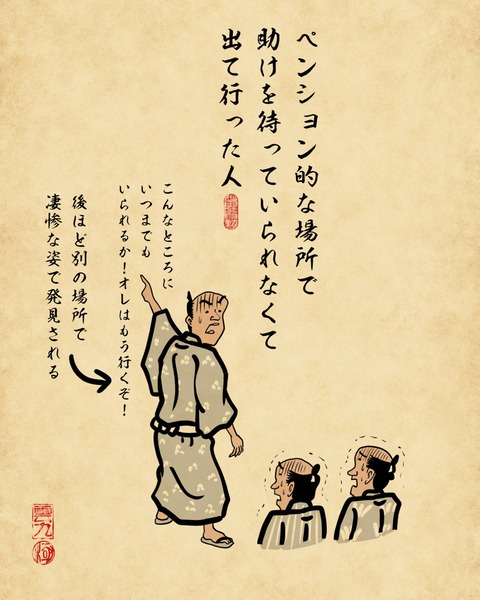 ペンション的な場所で
助けを待っていられなくて
出て行った人
こんなところに
いつまでも
いられるか！オレはもう行くぞ！
後ほど別の場所で
凄惨な姿で発見される